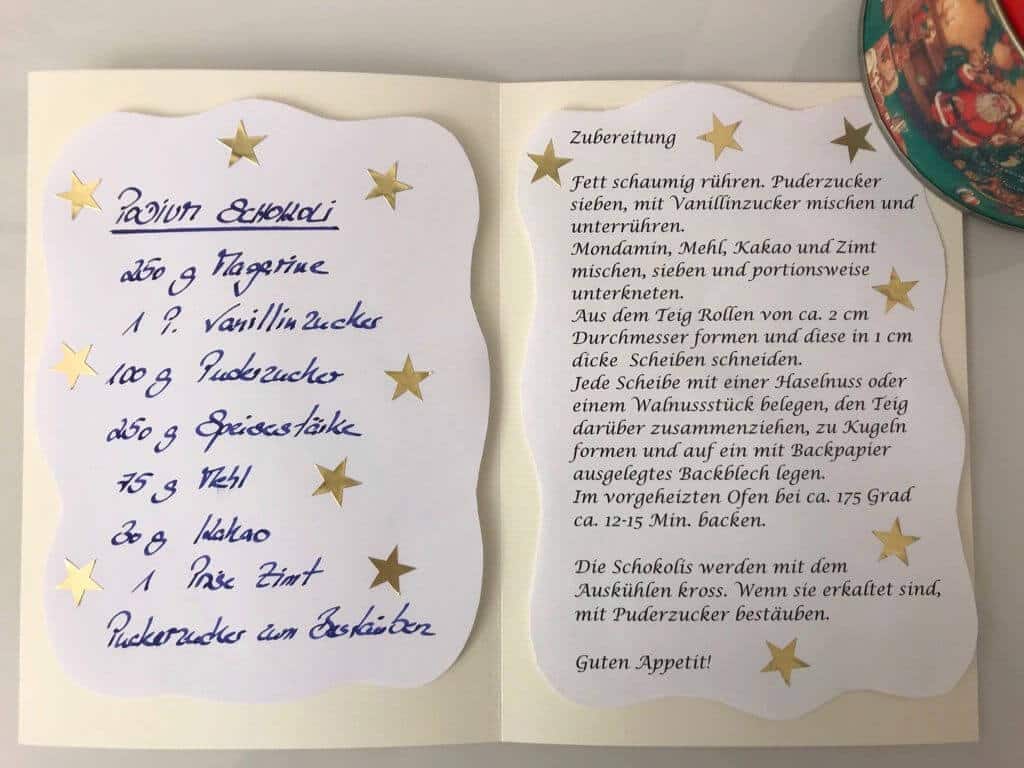 Podium Schokoli
250 g Magarine
1 P. Vanillinzucker
100 g Puderzucker
250 g Speisestärke
75 g Mehl
30 g Kakao
1 Prise Zimt
Puderzucker zum Bestäuben
Zubereitung
Fett schaumig rühren. Puderzucker
sieben, mit Vanillinzucker mischen und
unterrühren.
Mondamin, Mehl, Kakao und Zimt
mischen, sieben und portionsweise
unterkneten.
Aus dem Teig Rollen von ca. 2 cm
Durchmesser formen und diese in 1 cm
dicke Scheiben schneiden.
Jede Scheibe mit einer Haselnuss oder
einem Walnussstück belegen, den Teig
darüber zusammenziehen, zu Kugeln
formen und auf ein mit Backpapier
ausgelegtes Backblech legen.
Im vorgeheizten Ofen bei ca. 175 Grad
ca. 12-15 Min. backen.
Die Schokolis werden mit dem
Auskühlen kross. Wenn sie erkaltet sind,
mit Puderzucker bestäuben.
Guten Appetit!